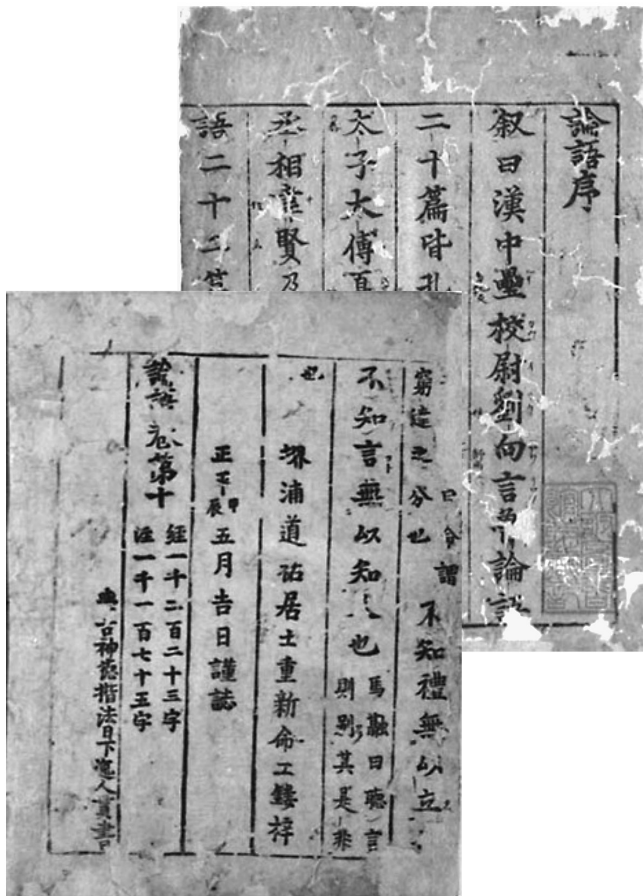 論語序
叙曰漢中壘校尉劉向言魯論語
二十篇皆孔
太子大傅夏
丞相韋賢乃
語二十二篇
曰命謂
窮達之分也
不知禮無以立
不知言無以知人也
馬融曰聽言
則別其是非
也
堺浦道祐居士重新命工鏤梓
正平甲辰五月吉日謹誌
論語卷第十
經一千二百二十三字
注一千一百七十五字
學古神德揩法日下逸人貫書